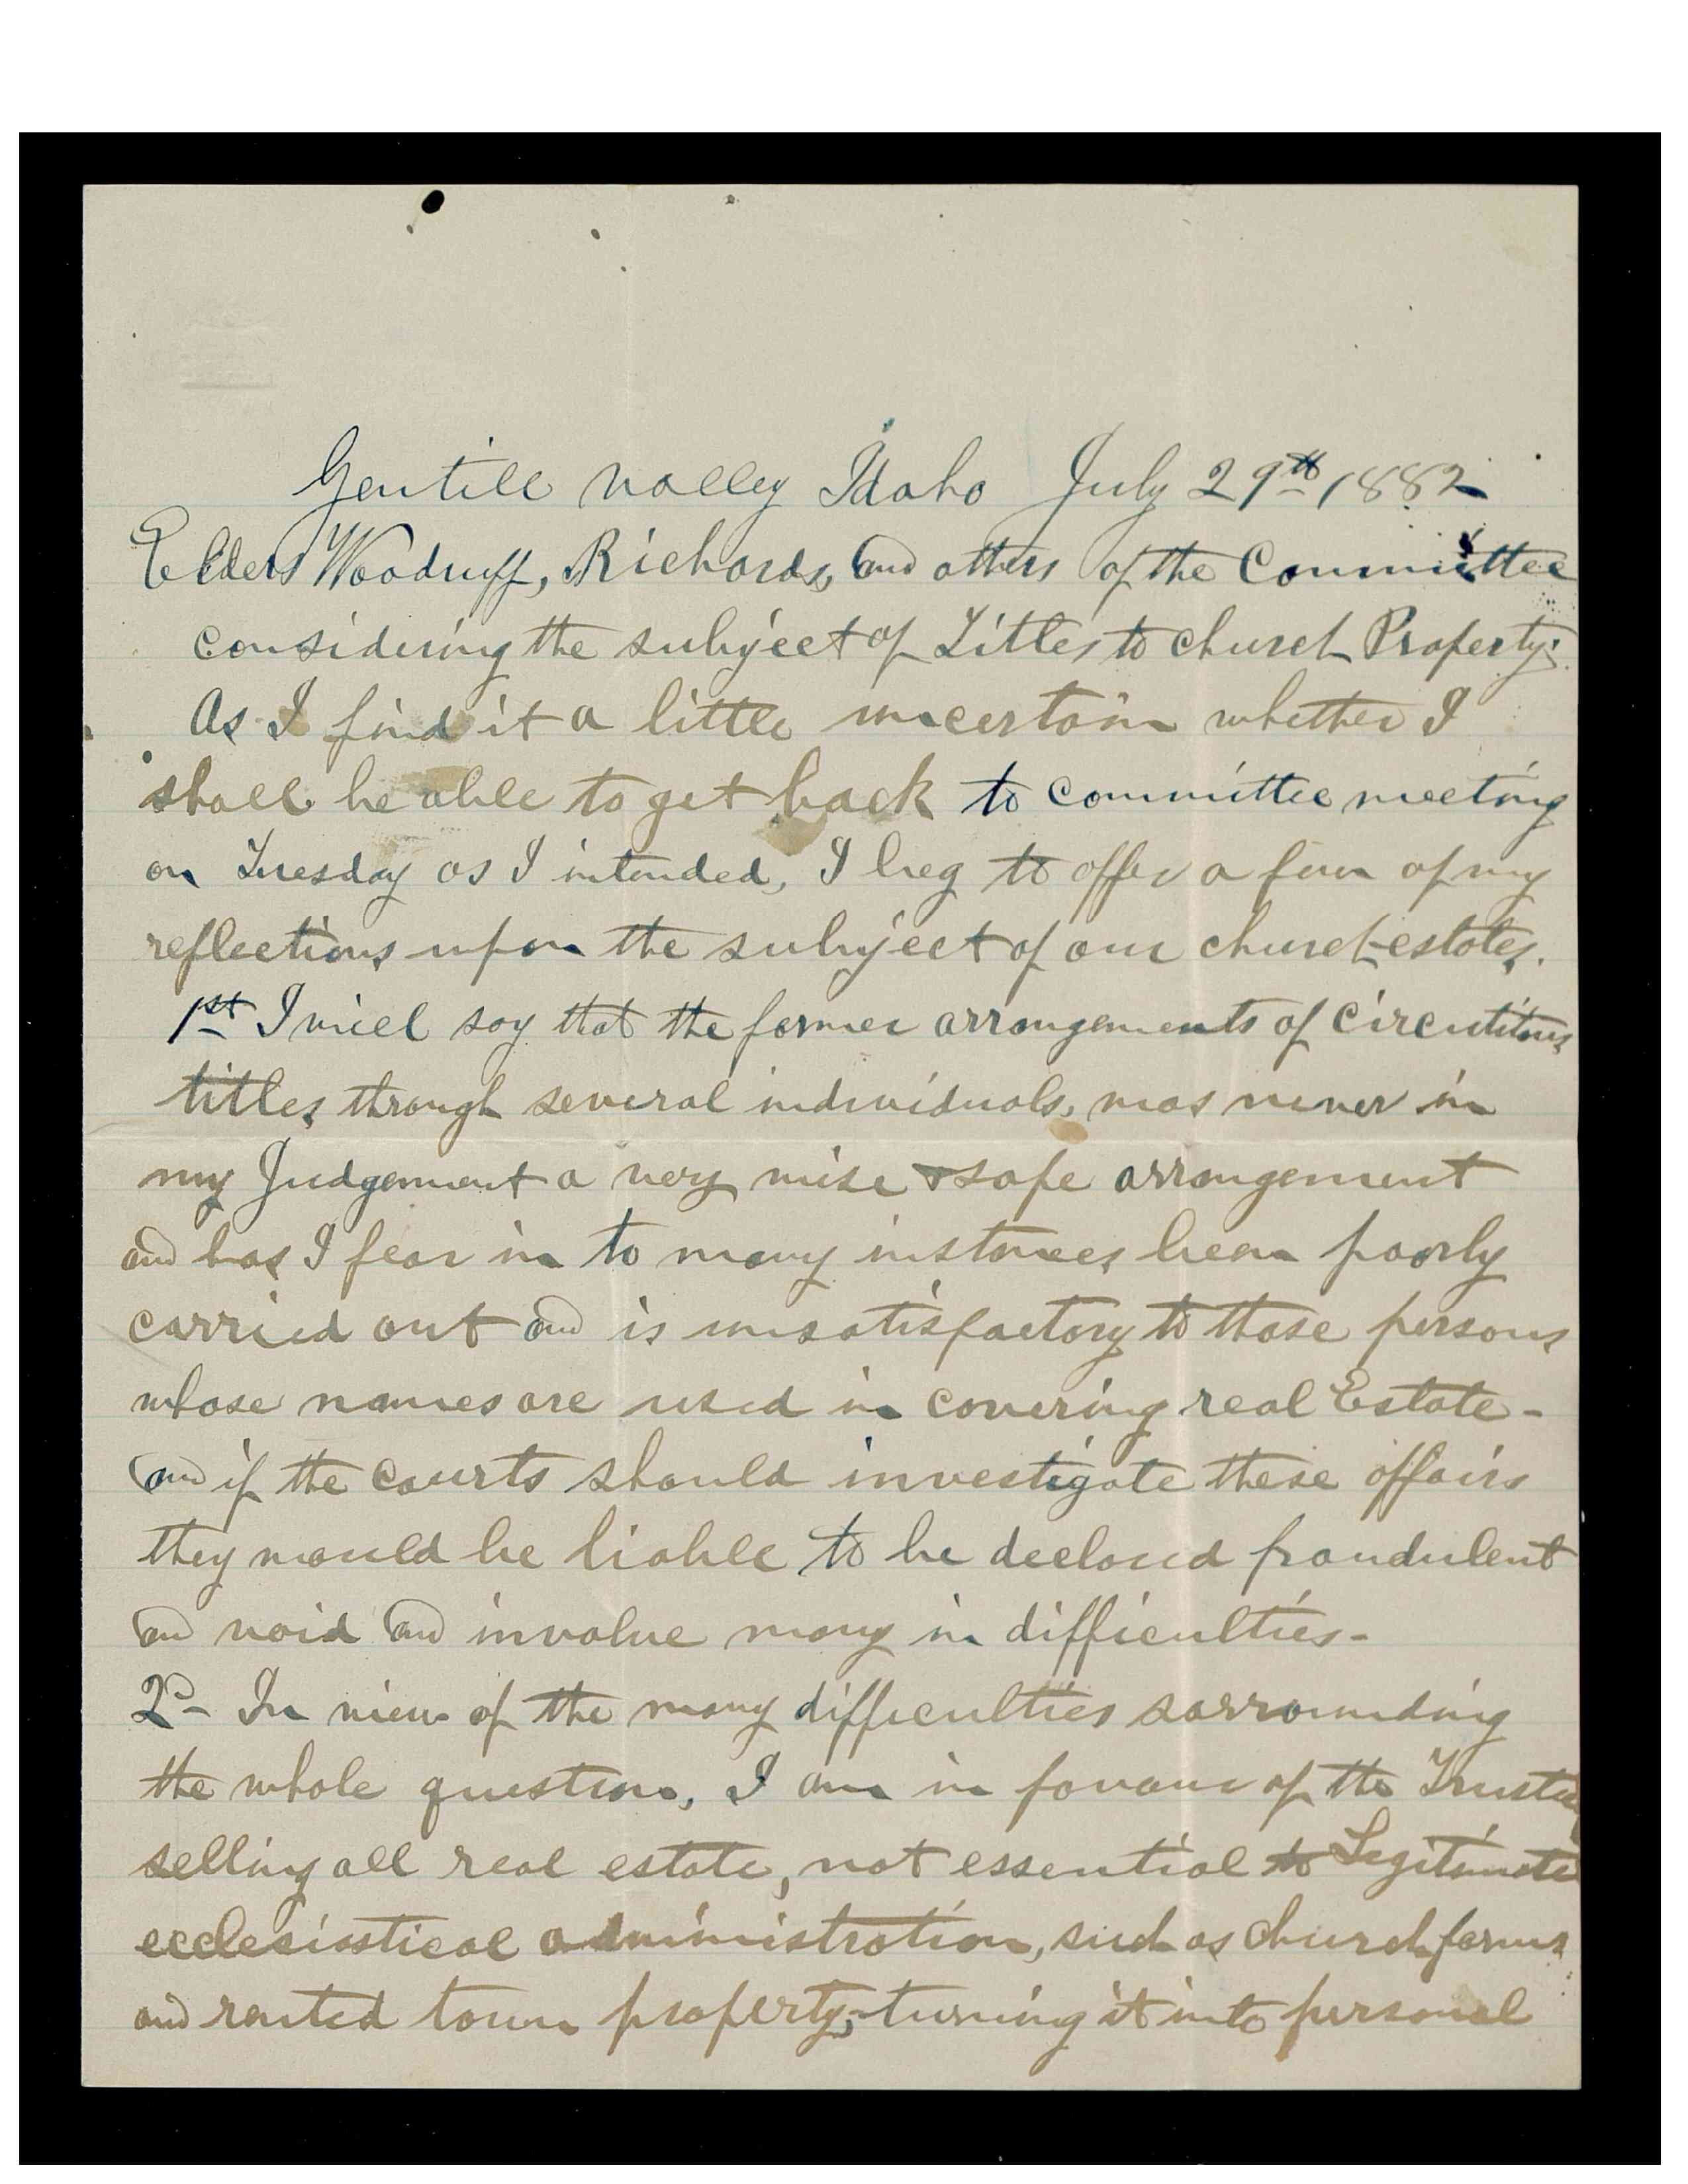 Gentile valley Idaho July 29th 1882
Elders Woodruff, Richards, and others of the Committee
considering the subject of Titles to church Property:
As I find it a little uncertain whether I
shall be able to get back to committee meeting
on Tuesday as I intended, I beg to offer a few of my
reflections upon the subject of our church estates.
1st I will say that the former arrangements of circuitous
titles through several individuals, was never in
my Judgement a very wise & safe arrangement
and has I fear in to many instances been poorly
carried out and is unsatisfactory to those persons
whose names are used in covering real Estate -
and if the courts should investigate these affairs
they would be liable to be declared fraudulent
and void and involve many in difficulties -
2d - In view of the many difficulties sorrounding
the whole question, I am in favour of the Trustee
selling all real estate, not essential to Legitimate
ecclesiastical administration, such as church farms
and rented town property; - turning it into personal